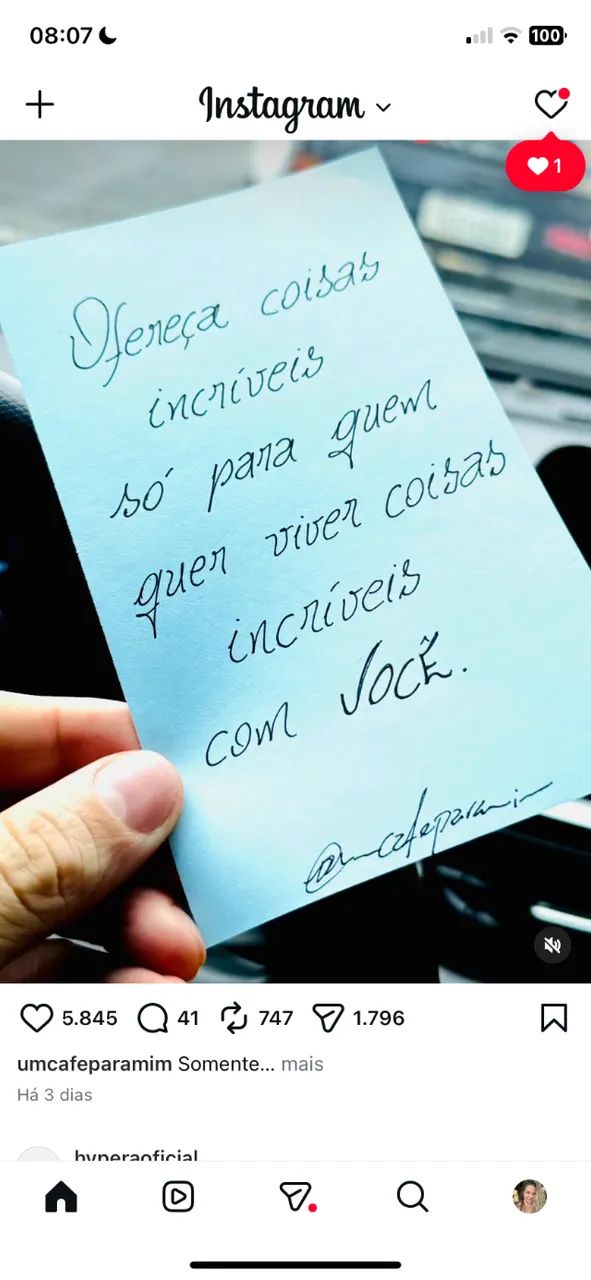 08:07
100
Instagram
1
Ofereça coisas
incríveis
só para quem
quer viver coisas
incríveis
com VOCÊ.
@umcafeparamim
5.845 41 747 1.796
umcafeparamim Somente... mais
Há 3 dias
hyperaoficial